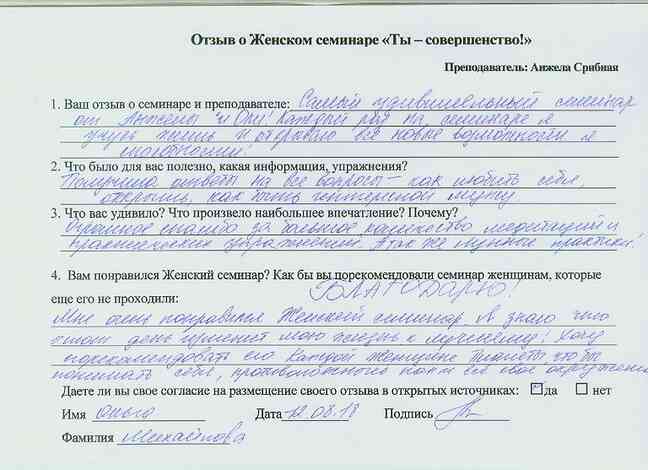 Отзыв о Женском семинаре «Ты – совершенство!»
Преподаватель: Анжела Срибная
1. Ваш отзыв о семинаре и преподавателе: Самый удивительный семинар
от Анжелы и Оли! Каждый раз на семинаре я
учусь жить и открываю все новые возможности и
способности!
2. Что было для вас полезно, какая информация, упражнения?
Получила ответы на все вопросы – как любить себя,
открыть, как быть интересной мужу
3. Что вас удивило? Что произвело наибольшее впечатление? Почему?
Огромное спасибо за большое количество медитаций и
практических упражнений. А так же лунные практики!
4. Вам понравился Женский семинар? Как бы вы порекомендовали семинар женщинам, которые
еще его не проходили: БЛАГОДАРЮ!
Мне очень понравился Женский семинар. Я знаю что
этот день изменит мою жизнь к лучшему! Хочу
порекомендовать его каждой женщине Планеты что бы
понимать себя, противоположный пол и все свое окружение
Даете ли вы свое согласие на размещение своего отзыва в открытых источниках: да нет
Имя Ольга Дата 12.08.18 Подпись
Фамилия Михайлова